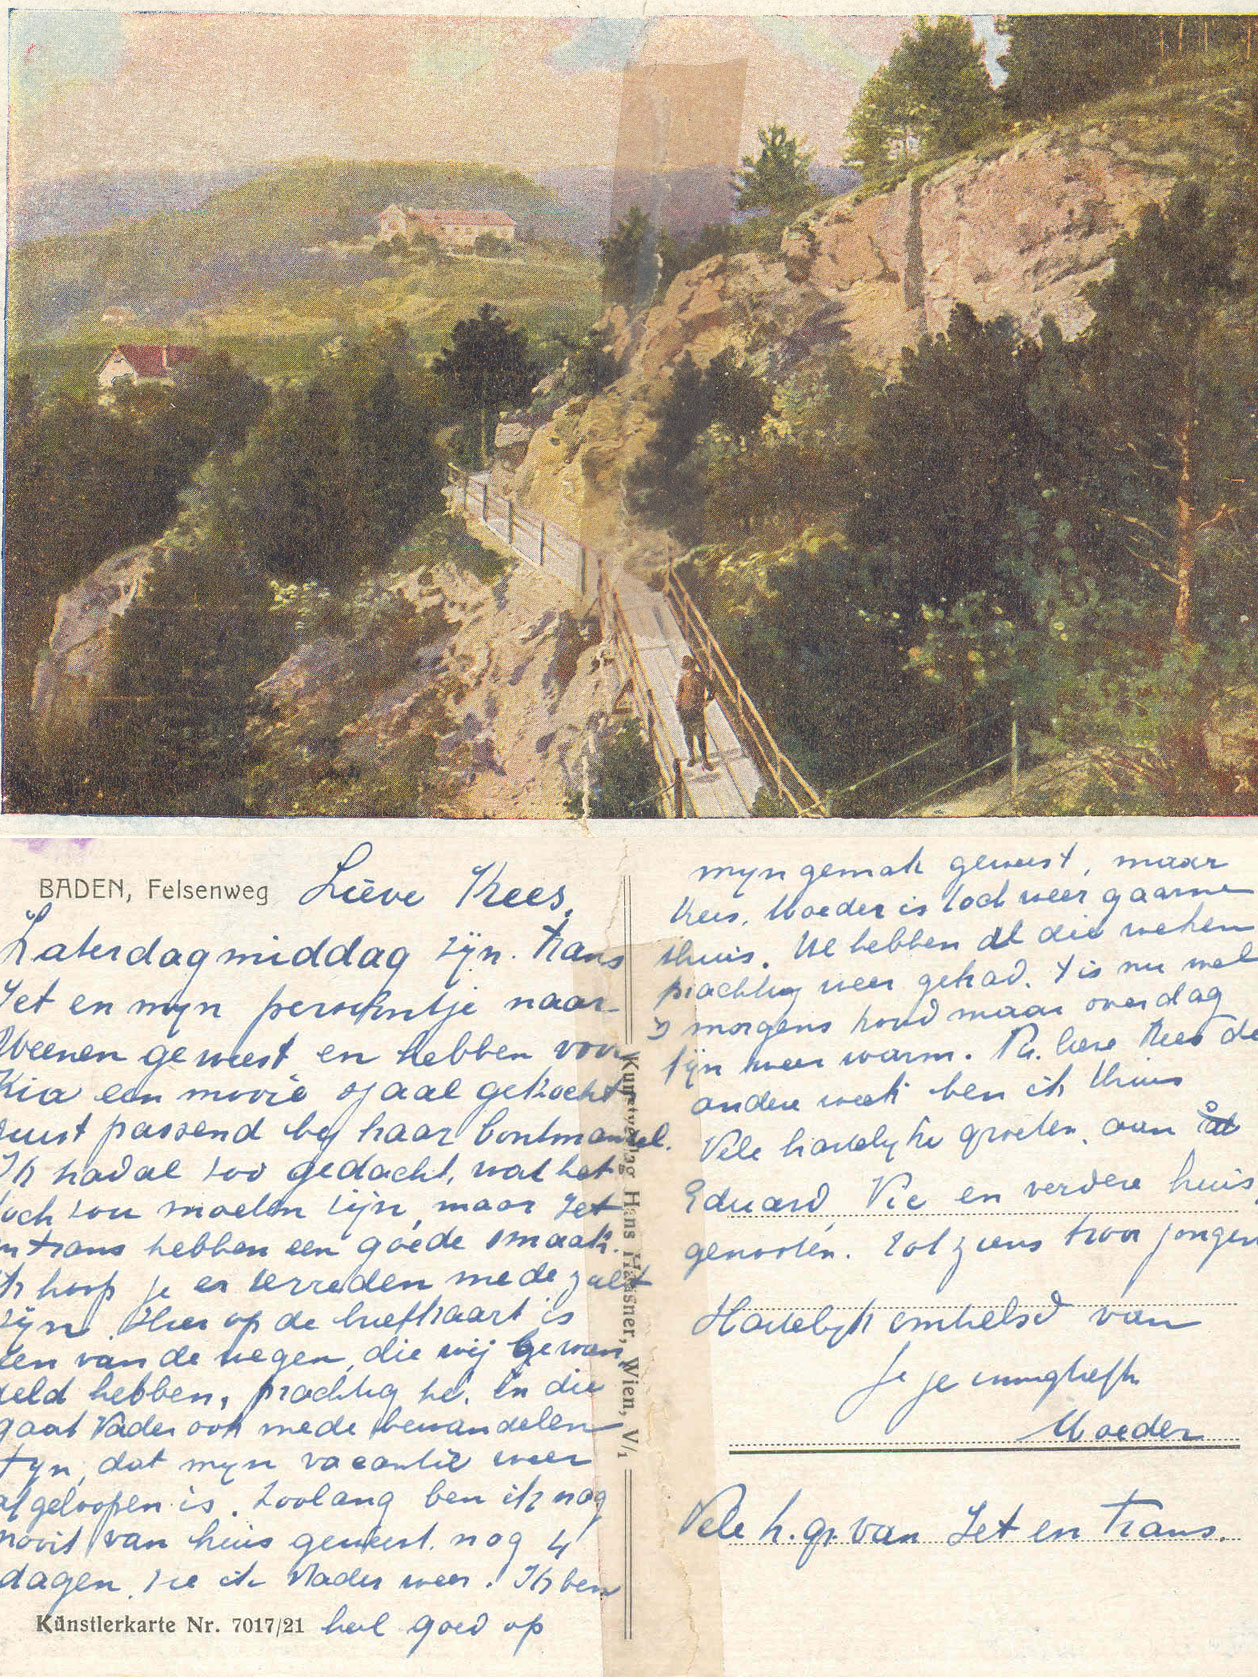 BADEN, Felsenweg
Lieve Kees,
Zaterdagmiddag zijn Frans
Jet en mijn persoontje naar
Weenen geweest en hebben voor
Kia een mooie sjaal gekocht
juist passend bij haar bontmantel.
Ik had al zoo gedacht, wat het
toch zou moeten zijn, maar Jet
en Frans hebben een goede smaak.
Ik hoop je er tevreden mede zult
zijn. Hier op de briefkaart is
een van de wegen, die wij gewan
deld hebben, prachtig he. En die
gaat Vader ook mede bewandelen
Fijn, dat mijn vacantie weer
afgeloopen is. Zoolang ben ik nog
nooit van huis geweest. nog 4
dagen, zie ik Vader weer. Ik ben
heel goed op
Künstlerkarte Nr. 7017/21
Kunstverlag Hans Hassner, Wien, V/1
mijn gemak geweest, maar
Kees, Moeder is toch weer gaarne
thuis. We hebben al die weken
prachtig weer gehad. 't is nu wel
's morgens koud maar overdag
fijn weer warm. Nu lieve Kees de
andere week ben ik thuis
Vele hartelijke groeten aan
Eduard, Vic en verdere huis
genooten. Tot ziens hoor jongen
Hartelijk omhelsd van
je je innigliefh
Moeder
Vele h. gr. van Jet en Frans.